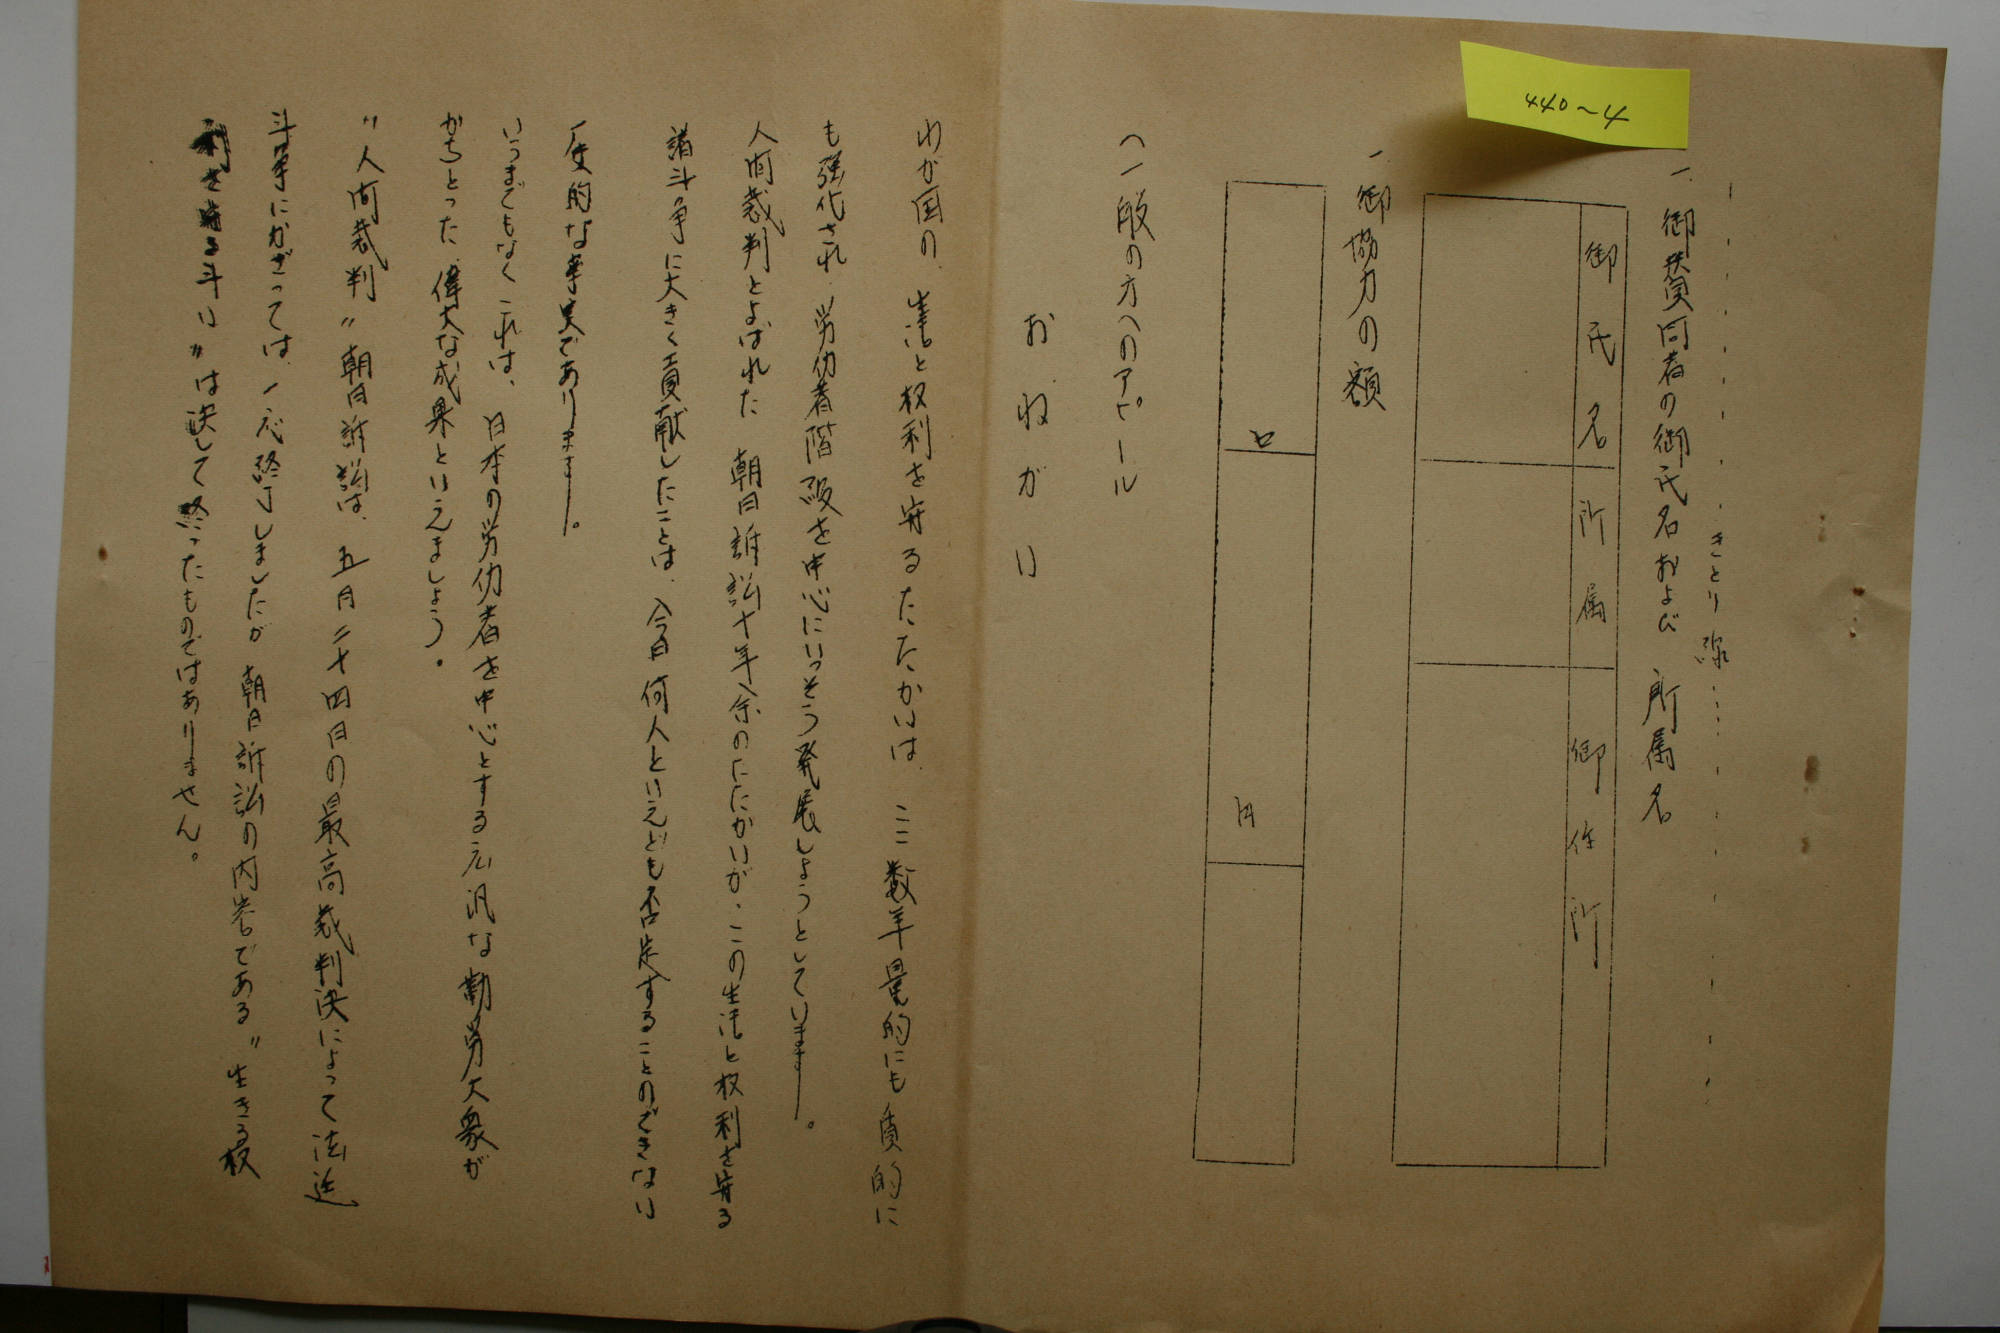 440~4
きとり線
一、御賛同者の御氏名および所属名
御氏名 所属 御住所
一、御協力の額
口 円
へ一般の方へのアピール
おねがい
わが国の、生活と权利を守るたたかいは、ここ数年量的にも質的に
も強化され、労仂者階級を中心にいっそう発展しようとしています。
人间裁判とよばれた朝日訴訟十年余のたたかいが、この生活と权利を守る
諸斗争に大きく貢献したことは、今日何人といえども否定することのできない
一史的な事実であります。
いうまでもなくこれは、日本の労仂者を中心とする広汎な勤労大衆が
かちとった偉大な成果といえましょう。
〃人间裁判〃朝日訴訟は、五月二十四日の最高裁判決によって法廷
斗争にかぎっては、一応終了しましたが朝日訴訟の内容である〃生きる权
利を守る斗い〃は決して終ったものではありません。